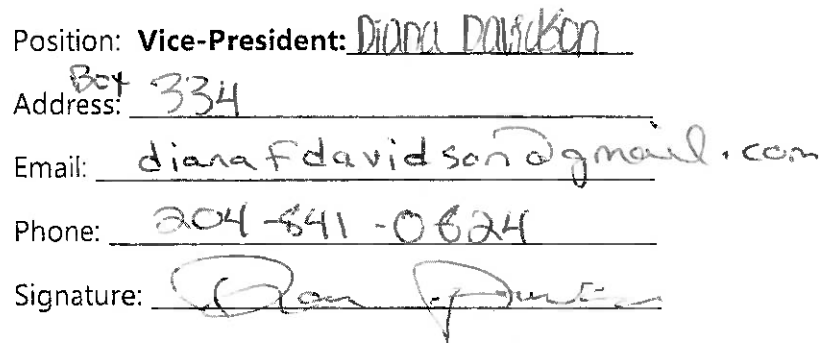 Position: Vice-President: Diana Davidson
Box
Address: 334
Email: dianafdavidson@gmail.com
Phone: 204-841-0624
Signature: